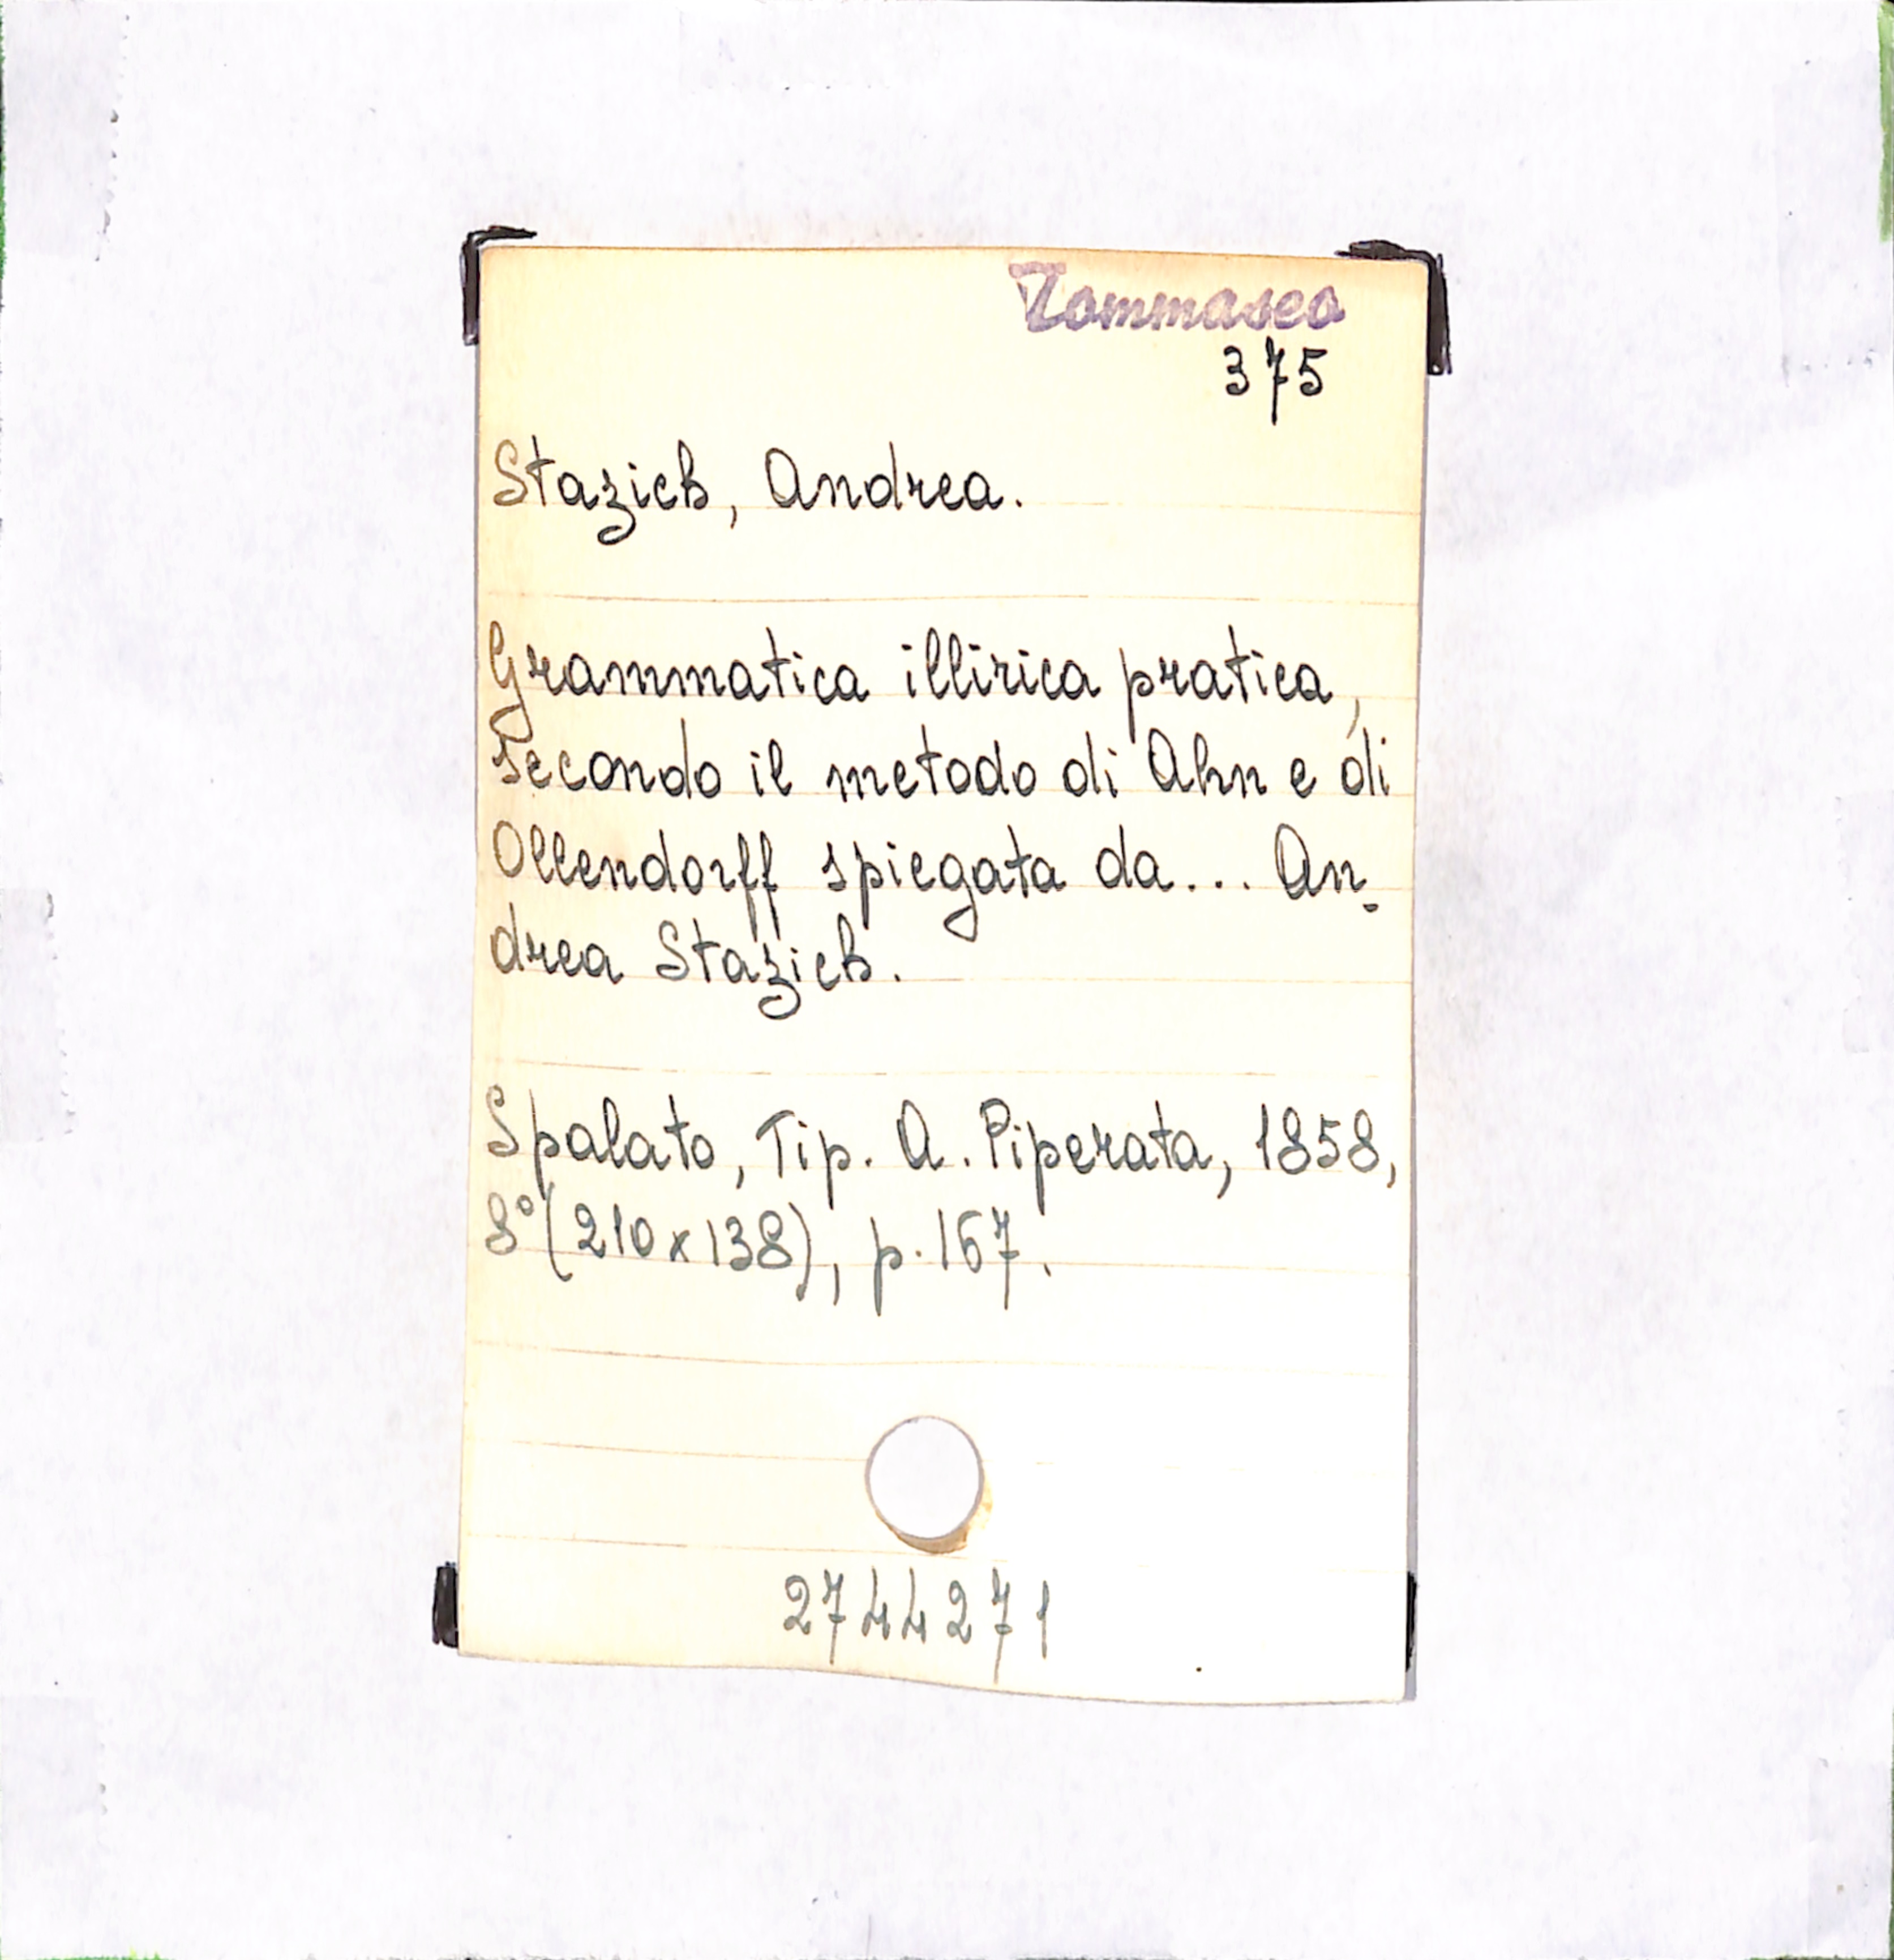 Tommaseo
375
Stazich, Andrea.
Grammatica illirica pratica,
secondo il metodo di Ahn e di
Ollendorff spiegata da... An-
drea Stazich.
Spalato, Tip. A. Piperata, 1858,
8° (210x138), p. 167.
2744271